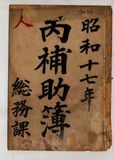 昭和十七年
人
丙補助簿
総務課